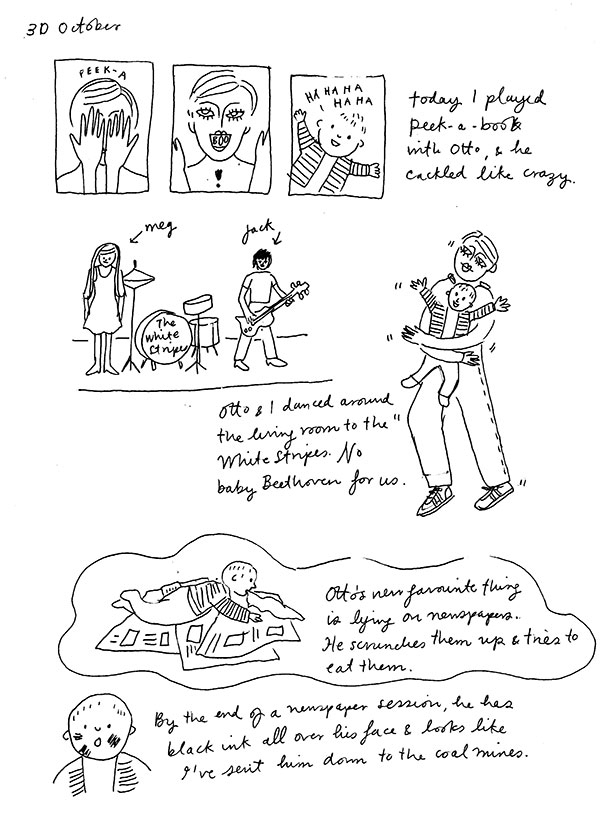 30 October
PEEK-A
BOO
!
HA HA HA
HA HA
today I played
peek-a-boo
with Otto, & he
cackled like crazy.
meg
jack
The
White
Stripes
Otto & I danced around
the living room to the
White Stripes. No
baby Beethoven for us.
Otto's new favourite thing
is lying on newspapers.
He scrunches them up & tries to
eat them.
By the end of a newspaper session, he has
black ink all over his face & looks like
I've sent him down to the coal mines.